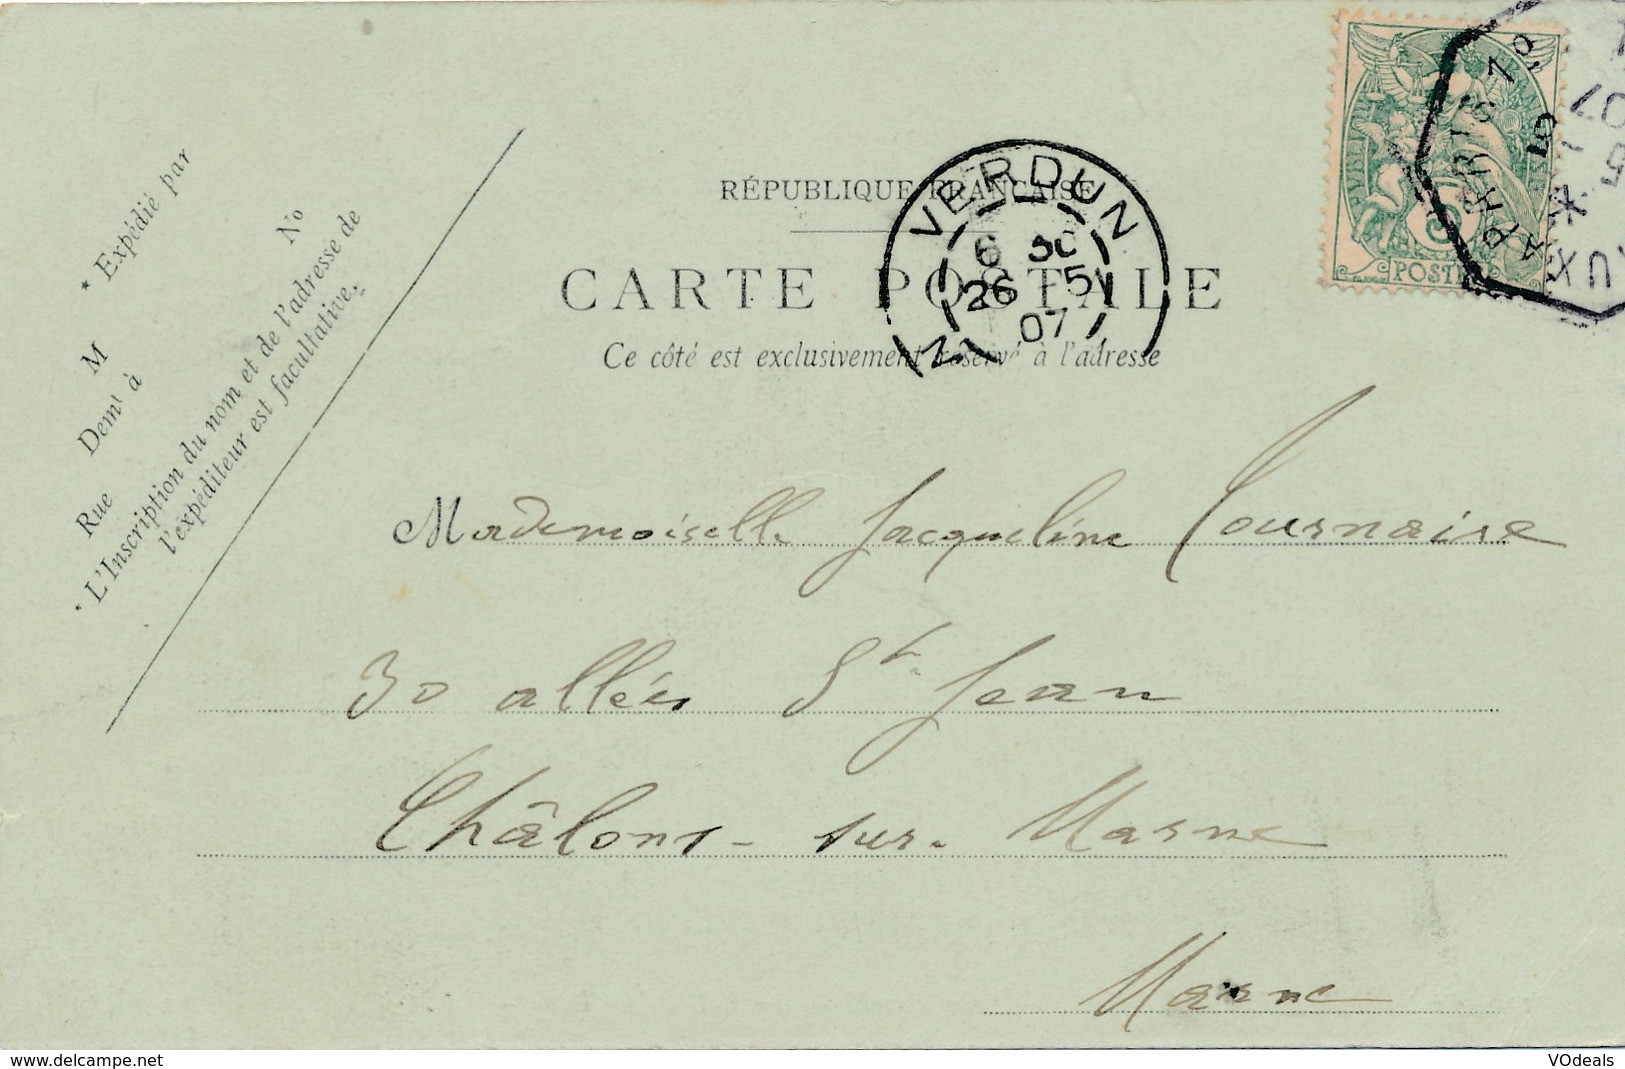 RÉPUBLIQUE FRANÇAISE
CARTE POSTALE
Ce côté est exclusivement réservé à l'adresse
* Expédié par
M
Demt à
Rue No
* L'Inscription du nom et de l'adresse de
l'expéditeur est facultative.
VERDUN
6
26 5
07
POSTES
PARIS
07
Mademoiselle Jacqueline Tournaire
30 allées St Jean
Châlons-sur-Marne
Marne
www.delcampe.net
VOdeals